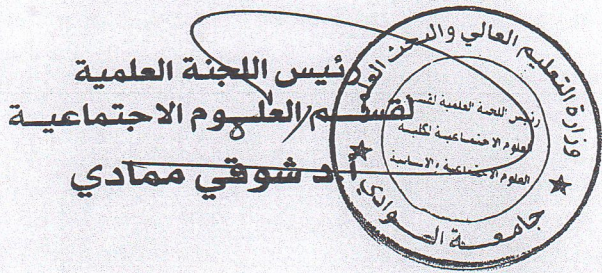 رئيس اللجنة العلمية
لقسم العلوم الاجتماعية
أ.د شوقي ممادي
وزارة التعليم العالي والبحث العلمي
رئيس اللجنة العلمية لقسم
العلوم الاجتماعية لكلية
العلوم الاجتماعية والانسانية
جامعة الوادي